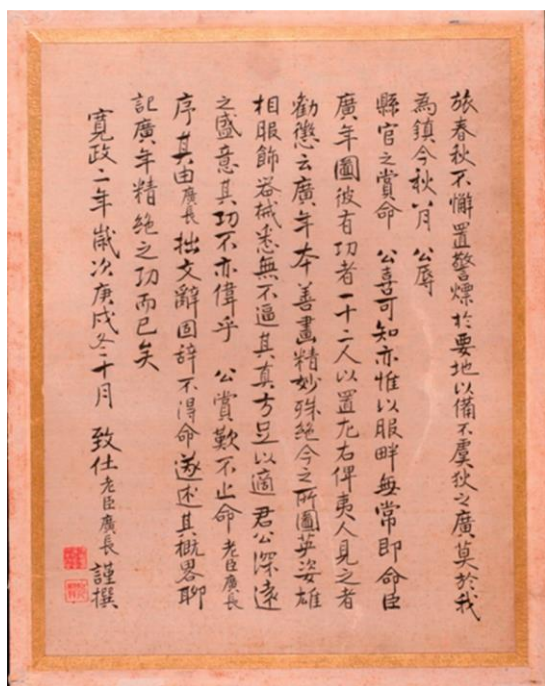 旅春秋不懈置警燧於要地以備不虞狄之廣莫於我
為鎮今秋八月　公辱
縣官之賞命　公喜可知亦惟以服畔無常即命臣
廣年圖彼有功者一十二人以置左右俾夷人見之者
勸懲云廣年本善畫精妙殊絕今之所圖英姿雄
相服飾器械悉無不逼其真方足以適　君公深遠
之盛意其功不亦偉乎　公賞歎不止命老臣廣長
序其由廣長拙文辭固辞不得命遂述其概畧聊
記廣年精絶之功而已矣
寛政二年歳次庚戌冬十月　致仕老臣廣長謹撰